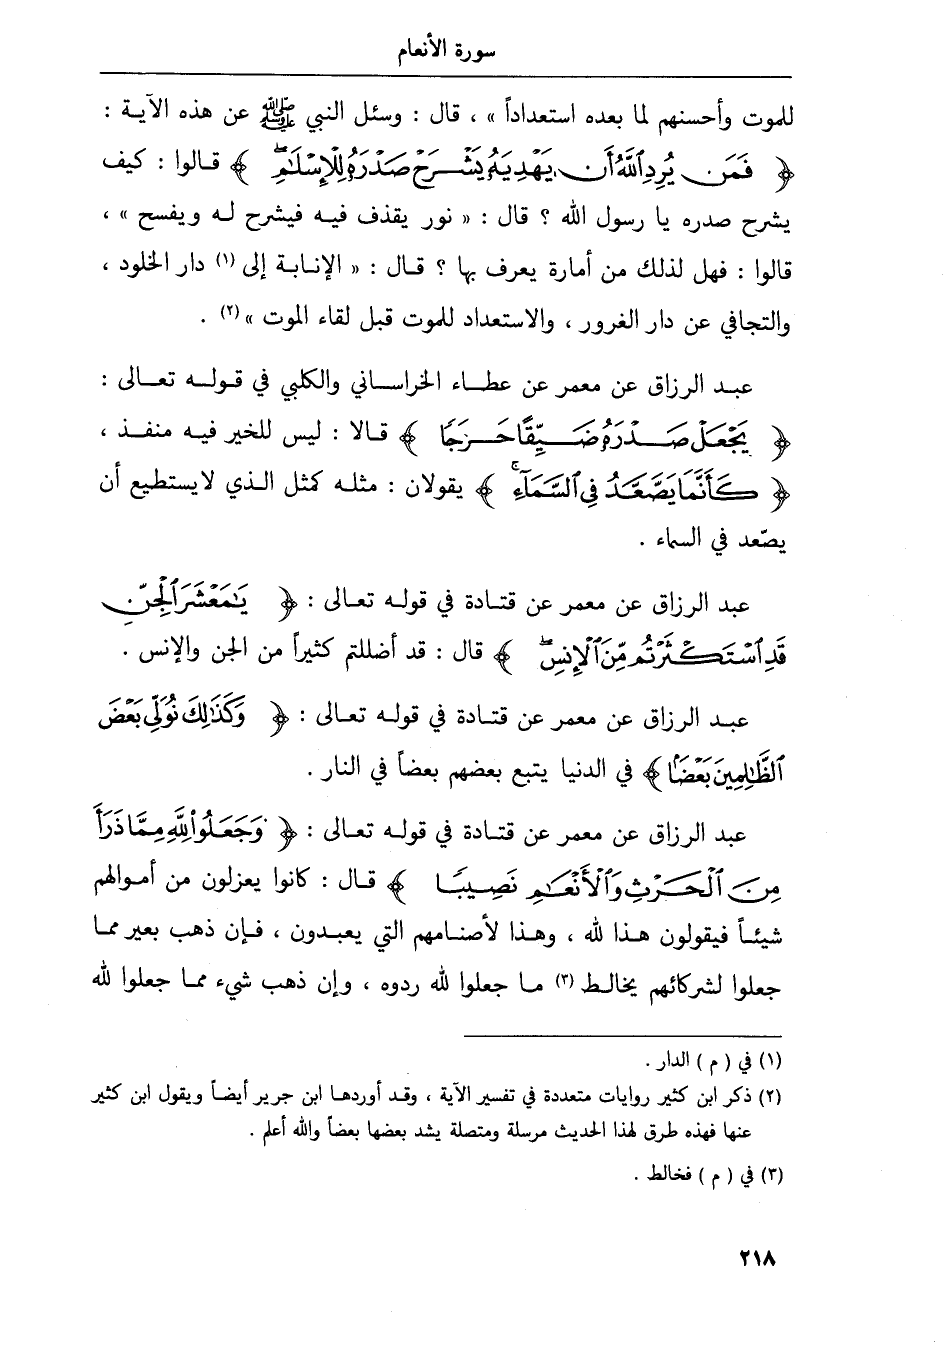 سورة الأنعام
للموت وأحسنهم لما بعده استعداداً » ، قال : وسئل النبي ﷺ عن هذه الآية :
﴿ فَمَن يُرِدِ ٱللَّهُ أَن يَهْدِيَهُۥ يَشْرَحْ صَدْرَهُۥ لِلْإِسْلَٰمِ ۖ ﴾ قالوا : كيف
يشرح صدره يا رسول الله ؟ قال : « نور يقذف فيه فيشرح له ويفسح » ،
قالوا : فهل لذلك من أمارة يعرف بها ؟ قال : « الإنابة إلى (١) دار الخلود ،
والتجافي عن دار الغرور ، والاستعداد للموت قبل لقاء الموت » (٢) .
عبد الرزاق عن معمر عن عطاء الخراساني والكلبي في قوله تعالى :
﴿ يَجْعَلْ صَدْرَهُۥ ضَيِّقًا حَرَجًا ﴾ قالا : ليس للخير فيه منفذ ،
﴿ كَأَنَّمَا يَصَّعَّدُ فِي ٱلسَّمَآءِ ۚ ﴾ يقولان : مثله كمثل الذي لايستطيع أن
يصّعد في السماء .
عبد الرزاق عن معمر عن قتادة في قوله تعالى : ﴿ يَٰمَعْشَرَ ٱلْجِنِّ
قَدِ ٱسْتَكْثَرْتُم مِّنَ ٱلْإِنسِ ۖ ﴾ قال : قد أضللتم كثيراً من الجن والإنس .
عبد الرزاق عن معمر عن قتادة في قوله تعالى : ﴿ وَكَذَٰلِكَ نُوَلِّي بَعْضَ
ٱلظَّٰلِمِينَ بَعْضًا ﴾ في الدنيا يتبع بعضهم بعضاً في النار .
عبد الرزاق عن معمر عن قتادة في قوله تعالى : ﴿ وَجَعَلُوا۟ لِلَّهِ مِمَّا ذَرَأَ
مِنَ ٱلْحَرْثِ وَٱلْأَنْعَٰمِ نَصِيبًا ﴾ قال : كانوا يعزلون من أموالهم
شيئاً فيقولون هذا لله ، وهذا لأصنامهم التي يعبدون ، فإن ذهب بعير مما
جعلوا لشركائهم يخالط (٣) ما جعلوا لله ردوه ، وإن ذهب شيء مما جعلوا لله
(١) في ( م ) الدار .
(٢) ذكر ابن كثير روايات متعددة في تفسير الآية ، وقد أوردها ابن جرير أيضاً ويقول ابن كثير
عنها فهذه طرق لهذا الحديث مرسلة ومتصلة يشد بعضها بعضاً والله أعلم .
(٣) في ( م ) فخالط .
٢١٨